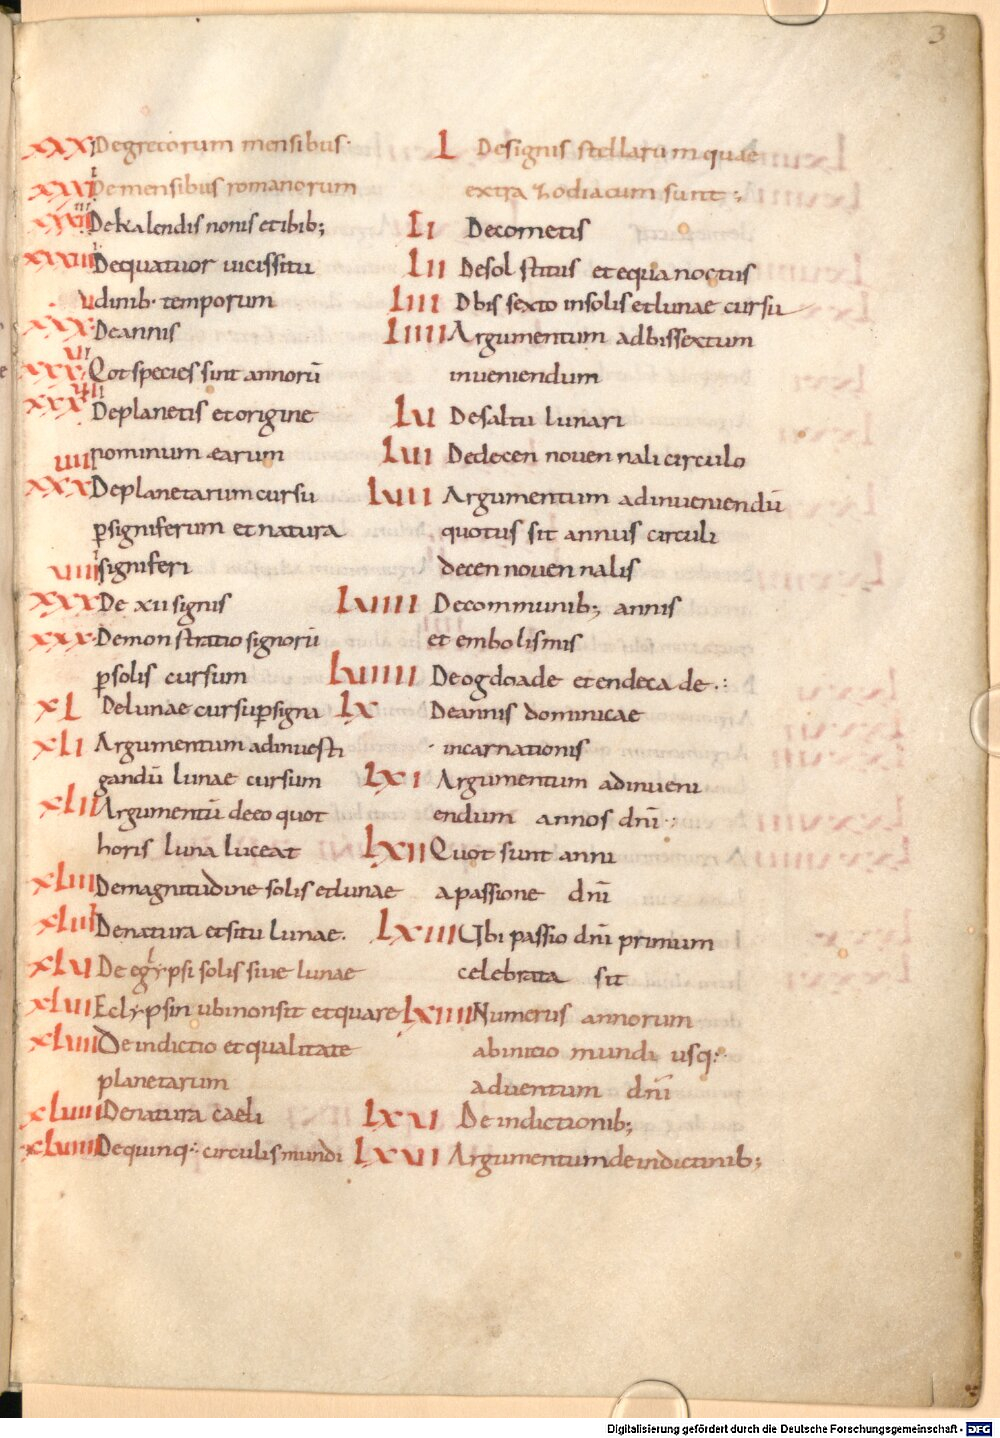 3
XXX Degrecorum mensibus·
XXXI Demensibus romanorum
XXXII Dekalendis nonis etidib;
XXXIII Dequatuor uicissitu
dinib· temporum
XXX Deannis
XXXVI Qot species sint annorū
XXXVII Deplanetis etorigine
nominum earum
XXXVIII Deplanetarum cursu
p̱signiferum et natura
signiferi
XXXVIIII De xii signis
XXX Demonstratio signorū
p̱solis cursum
XL Delunae cursup̱signa
XLI Argumentum adinuesti
gandū lunae cursum
XLII Argumentū deeo quot
horis luna luceat
XLIII Demagnitudine solis etlunae
XLIIII Denatura etsitu lunae.
XLVI De eglypsi solis siue lunae
XLVII Eclypsin ubinonsit etquare
XLVIII De indictio et qualitate
planetarum
XLVIIII Denatura caeli
XLVIIII Dequinq; circulis mundi
L Designis stellarum quae
extra zodiacum sunt :,
LI Decometis
LII Desolstitiis et equinoctiis
LIII Dbis sexto insolis etlunae cursu
LIIII Argumentum adbissextum
inueniendum
LVI Desaltu lunari
LVII Dedecen nouen nali circulo
LVIII Argumentum adinueniendū
quotus sit annus circuli
decennouennalis
LVIIII Decommunib; annis
et embolismis
LVIIII Deogdoade et endeca de .:
LX Deannis dominicae
· incarnationis
LXI Argumentum adinueni
endum annos dn̄i :
LXII Quot sunt anni
apassione dn̄i
LXIII Ubi passio dn̄i primum
celebrata sit
LXIIII Numerus annorum
abinitio mundi usq:
aduentum dn̄i
LXVI De indictionib;
LXVI Argumentum deindictinib;
Digitalisierung gefördert durch die Deutsche Forschungsgemeinschaft - DFG